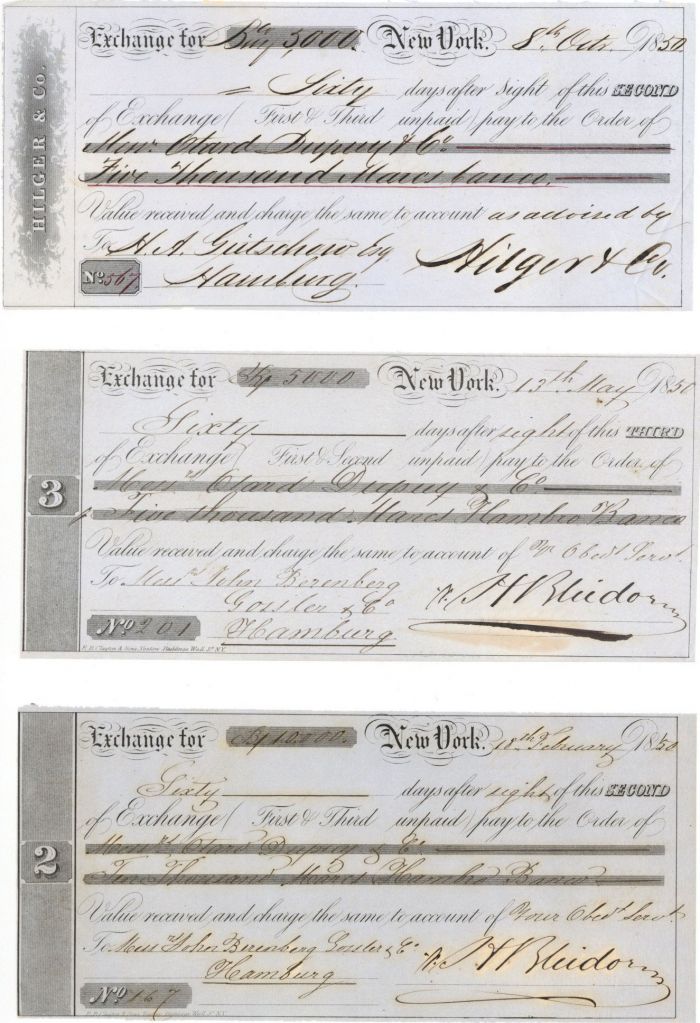 HILGER & Co.
Exchange for Bco Mf 5,000. New York. 8th Octr. 1850
= Sixty days after Sight of this SECOND
of Exchange (First & Third unpaid) pay to the Order of
Messrs. Otard Dupuy & Co
Five Thousand Marcs banco.
Value received and charge the same to account as advised by
To H. A. Gütschow Esq Hilger & Co.
No. 567 Hamburg.
3
Exchange for 5000 New York. 13th May 1850
Sixty days after sight of this THIRD
of Exchange (First & Second unpaid) pay to the Order of
Messrs Otard Dupuy & Co
Five thousand Marcs Hambro Banco
Value received and charge the same to account of Yr Obedt Servt.
To Messrs John Berenberg
Gossler & Co H Bleidorn
No 201 Hamburg
2
Exchange for 10.000. New York. 18th February 1850
Sixty days after sight of this SECOND
of Exchange (First & Third unpaid) pay to the Order of
Messrs Otard Dupuy & Co
Ten Thousand Marcs Hambro Banco
Value received and charge the same to account of Your Obedt Servt.
To Messrs John Berenberg Gossler & Co
Hamburg H Bleidorn
No 167